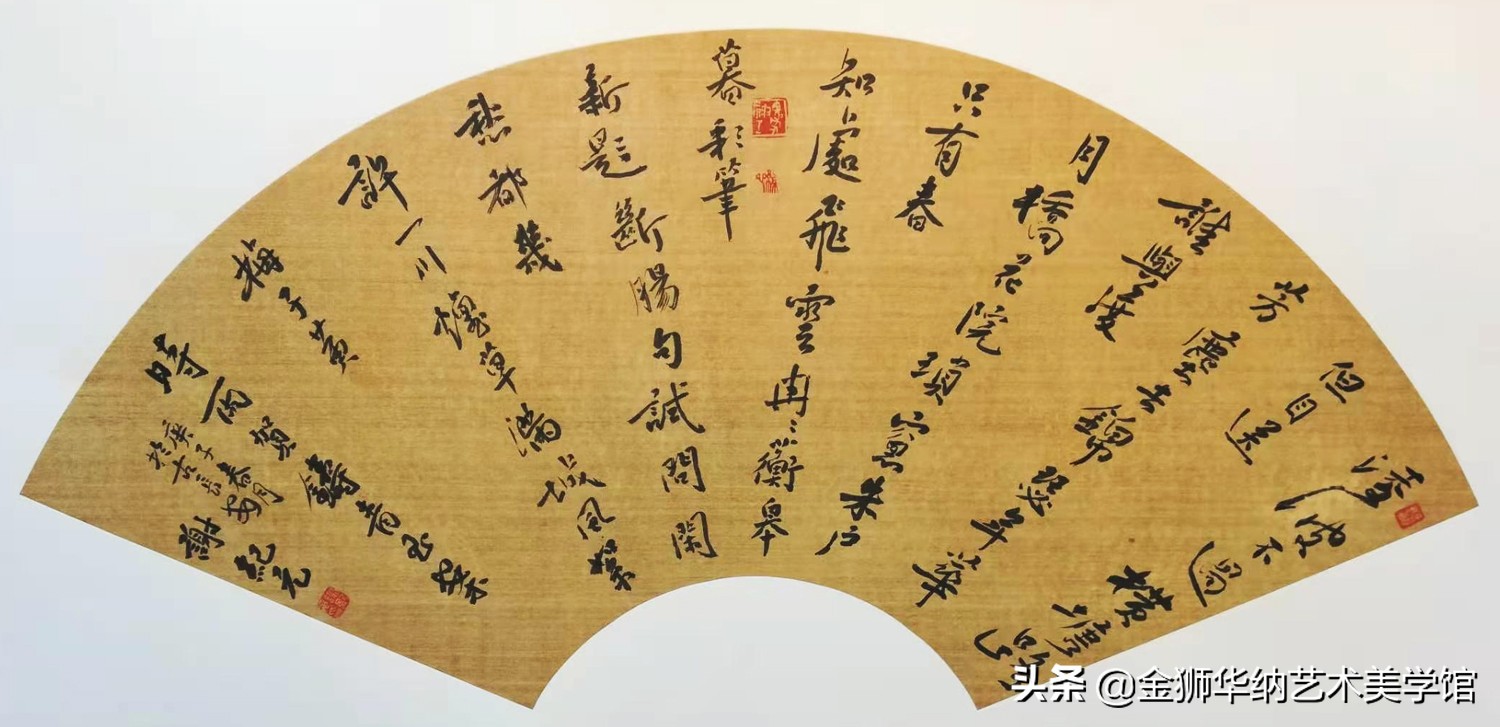 淩波不過橫塘路
但目送
芳塵去錦瑟年華
誰與度
月橋花院瑣窗朱戶
只有春
知處飛雲冉冉蘅皋
暮彩筆
新題斷腸句試問閑
愁都幾
許一川煙草滿城風絮
梅子黃
時雨賀鑄青玉案
庚子春月
於古安
謝紀元
头条 @金狮华纳艺术美学馆